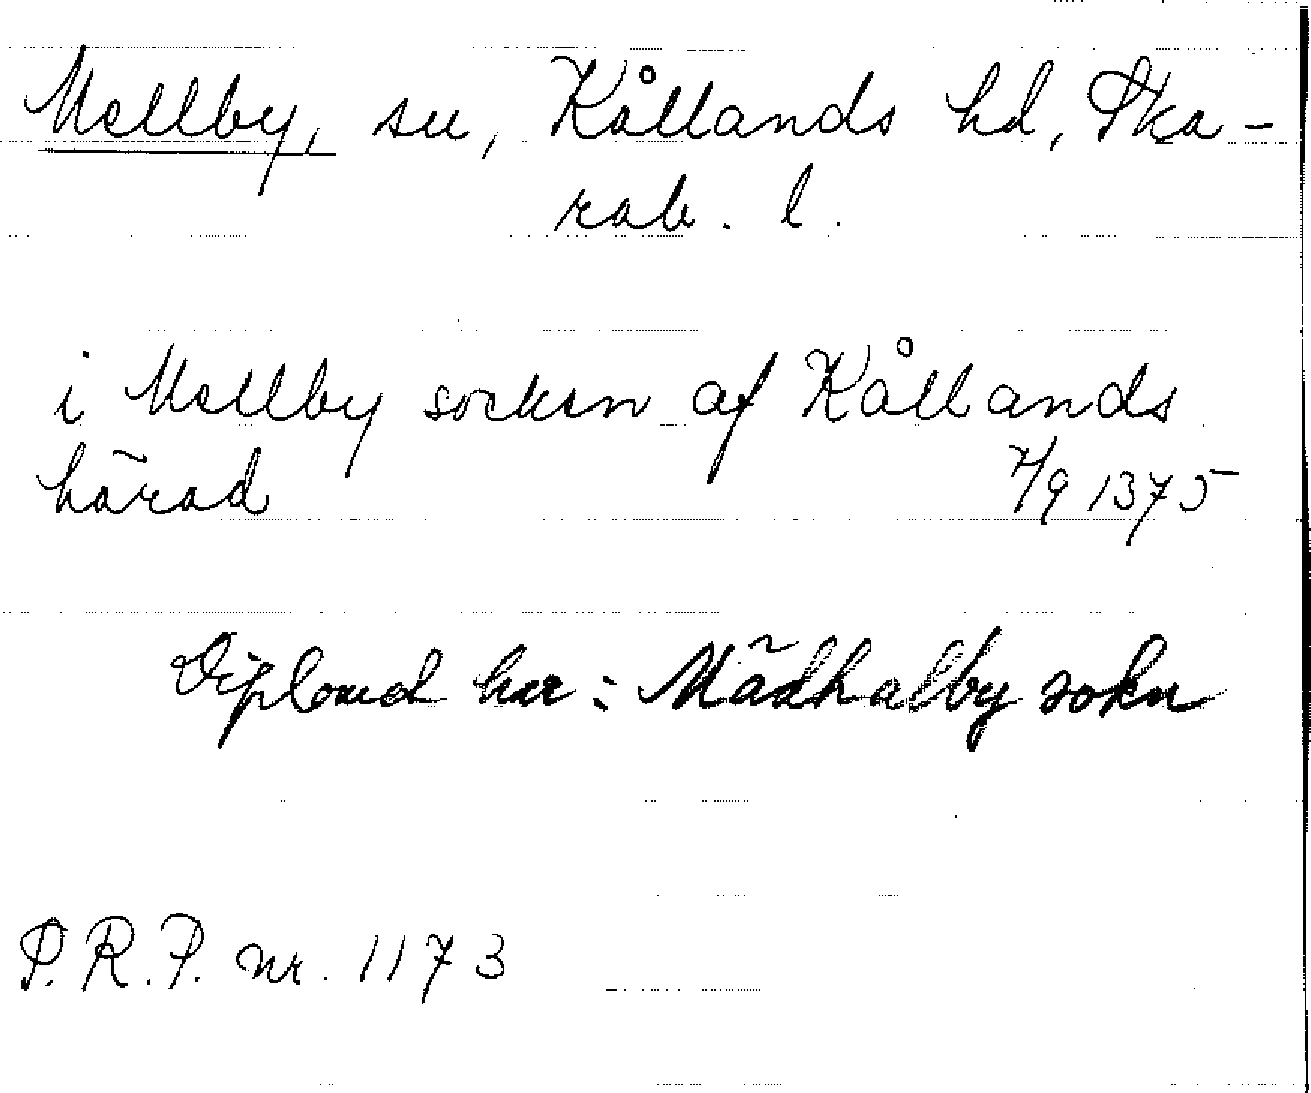 Mellby, sn, Kållands hd, Ska-
rab. l.
i Mellby socken af Kållands
härad 7/9 1375
Diplomet har: Mädhalby sokn
S.R.P. nr. 1173